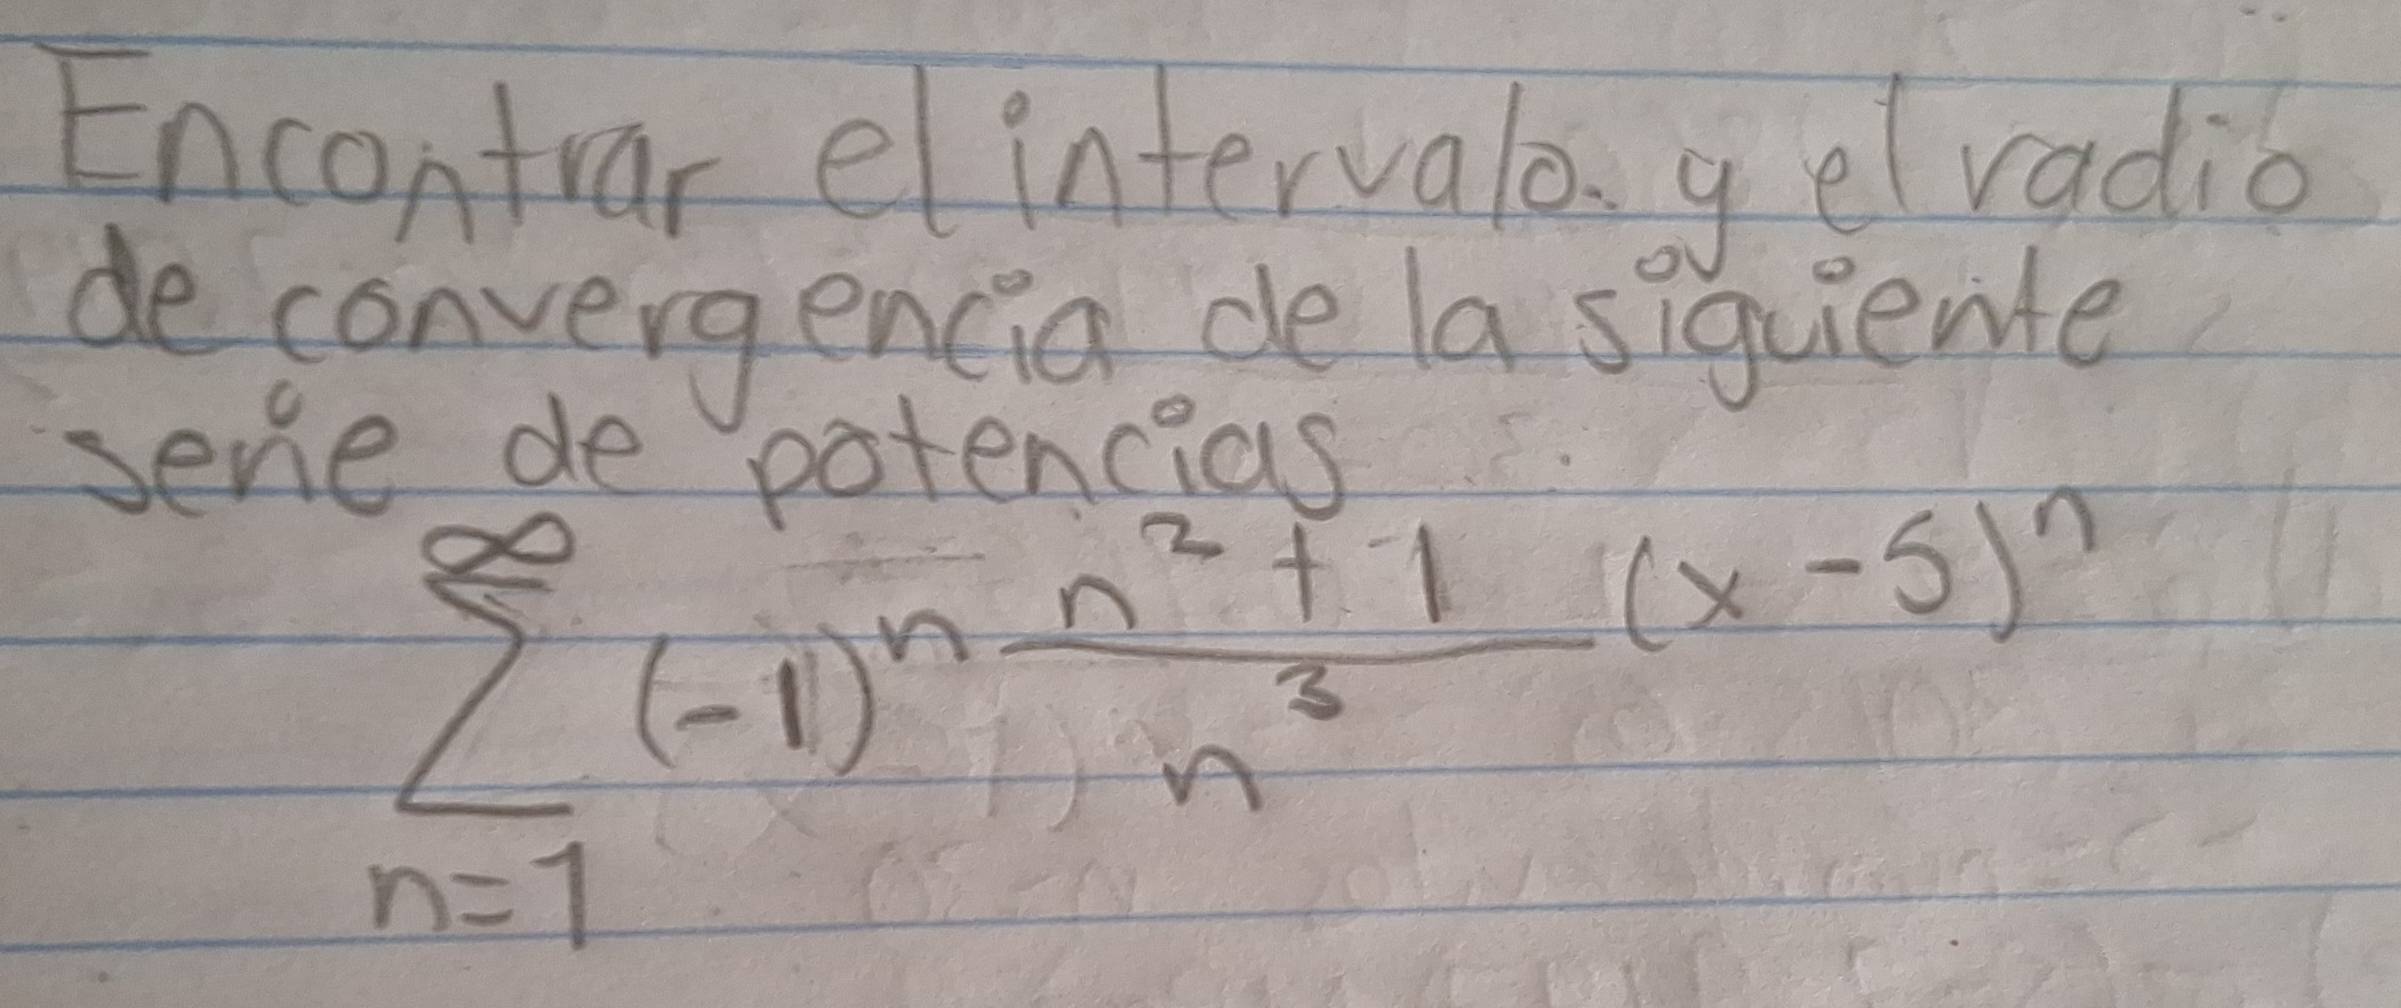 Encontrar el intervalo. y el radio
de convergencia de la siguiente
serie de potencias
∞
∑ (-1)ⁿ (n² + 1)/n³ (x - 5)ⁿ
n=1